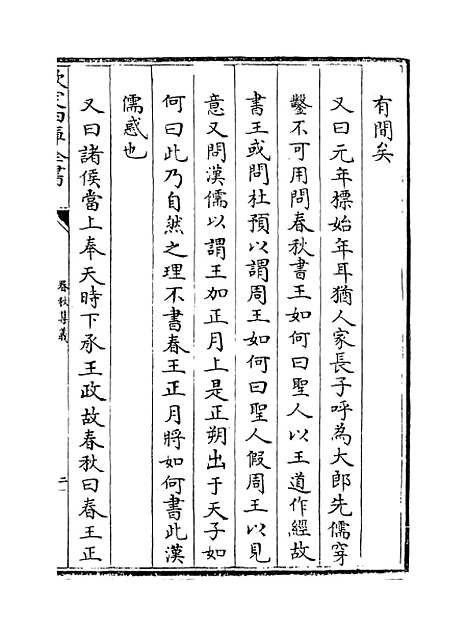 有間矣
又曰元年標始年耳猶人家長子呼為大郎先儒穿
鑿不可用問春秋書王如何曰聖人以王道作經故
書王或問杜預以謂周王如何曰聖人假周王以見
意又問漢儒以謂王加正月上是正朔出于天子如
何曰此乃自然之理不書春王正月將如何書此漢
儒惑也
又曰諸侯當上奉天時下承王政故春秋曰春王正
欽定四庫全書
春秋集義
二